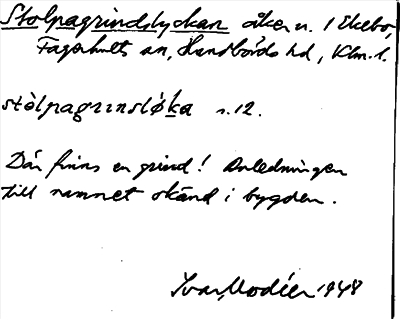 Stolpagrindslyckan åker n. 1 Ekebo,
Fagerhults sn, Handbörds hd, Klm. l.
stòlpagrinsløka s. 12.
Där finns en grind! Anledningen
till namnet okänd i bygden.
Ivar Modéer 1948